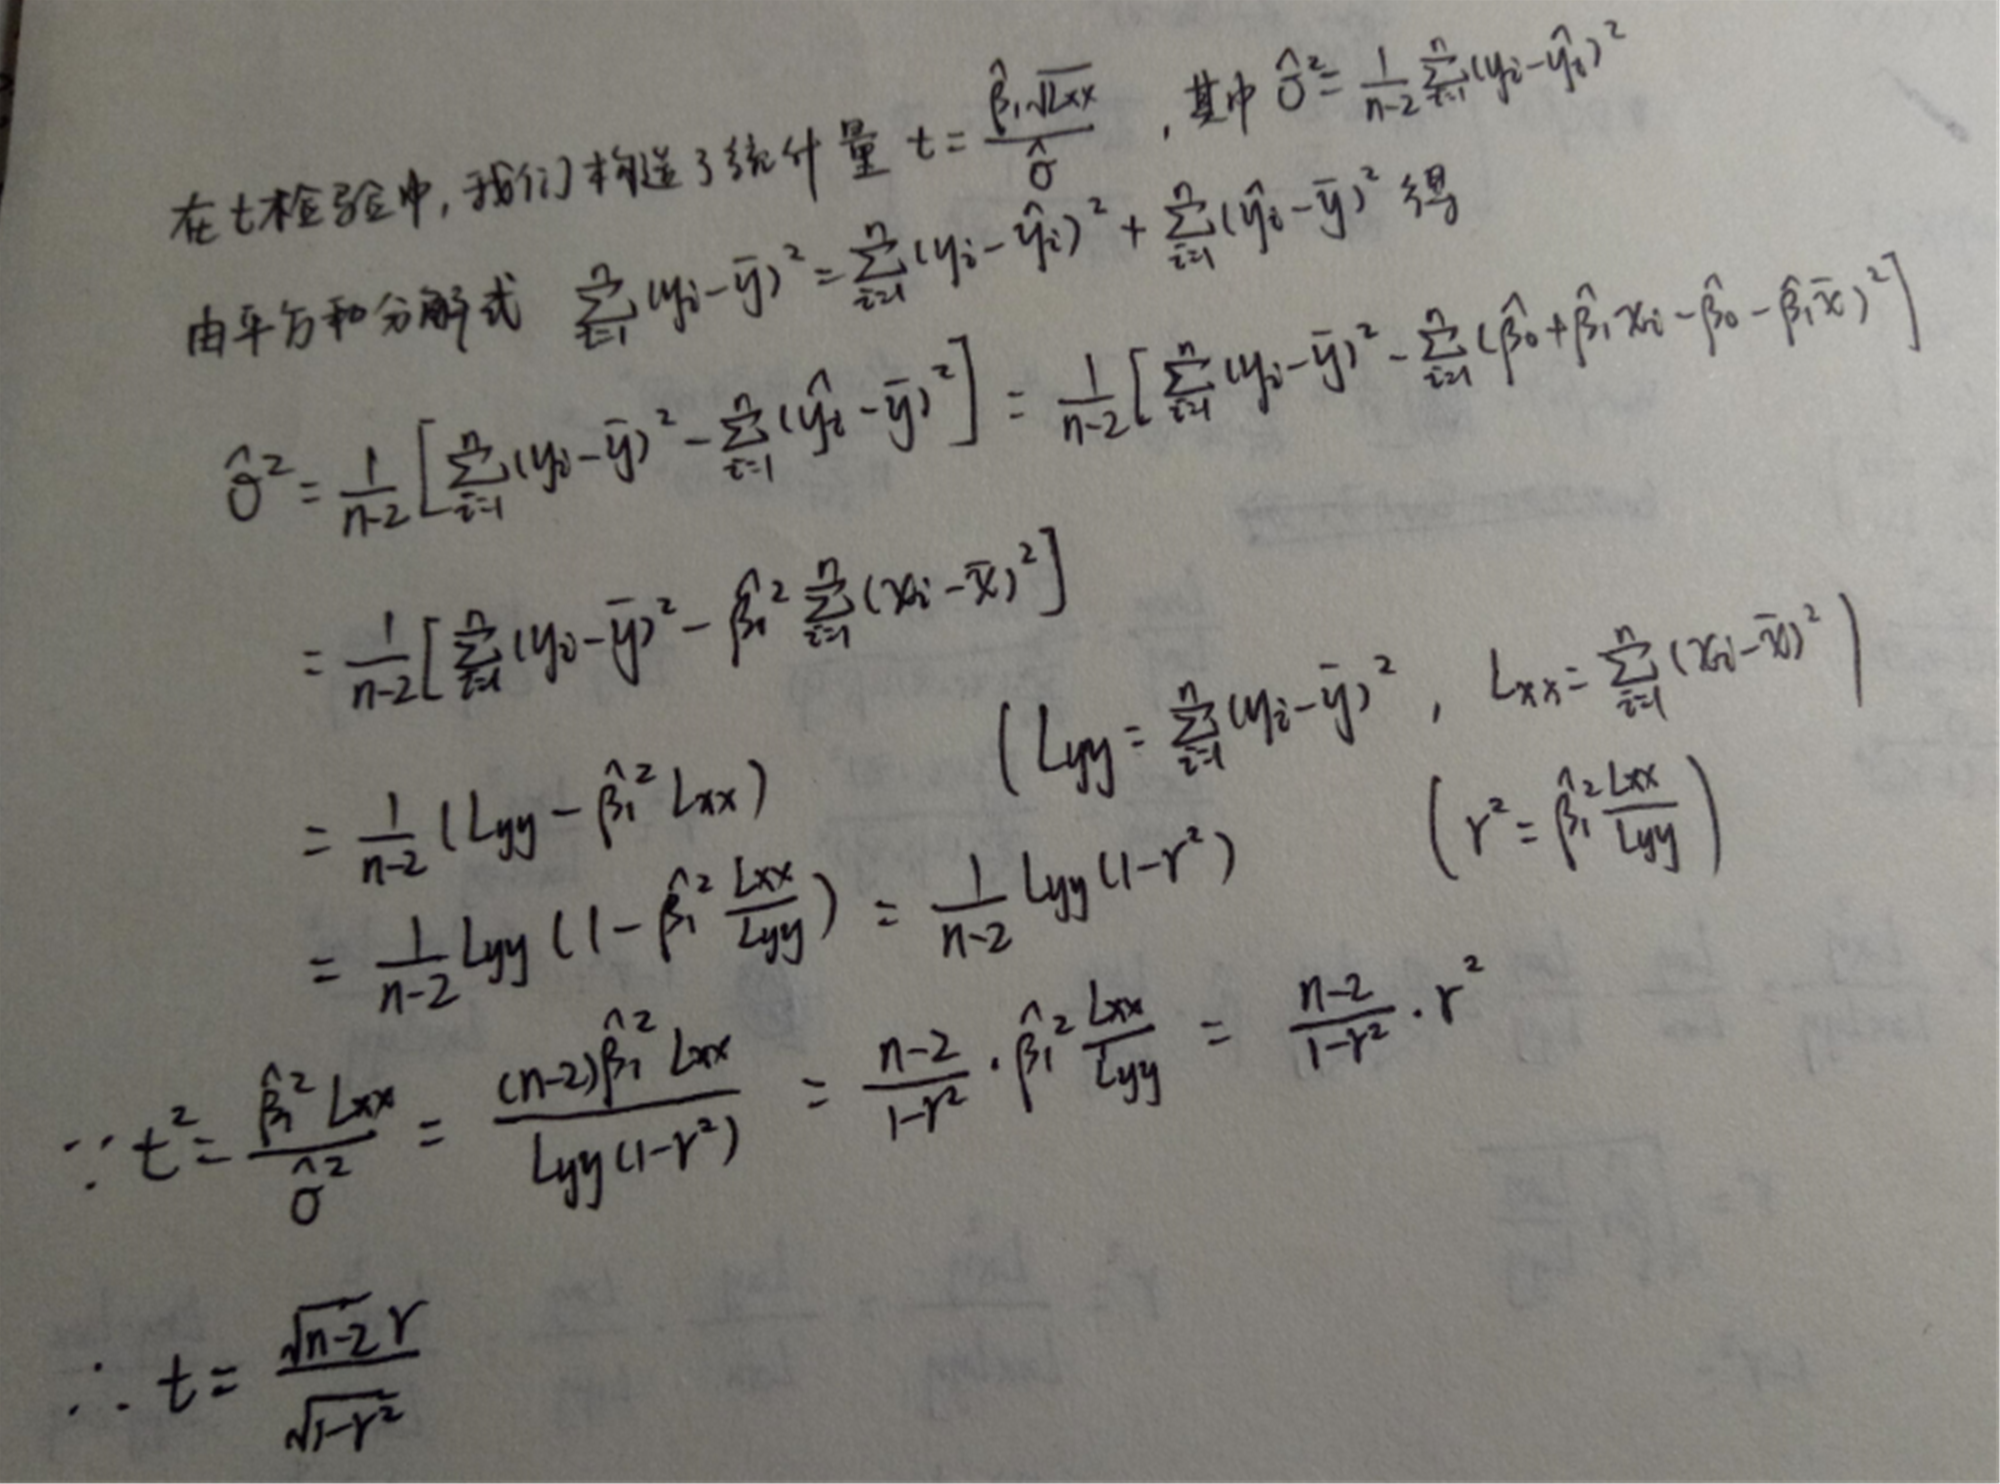 在t检验中,我们构造了统计量 t = \frac{\hat{β}_1\sqrt{Lxx}}{\hat{σ}} , 其中 \hat{σ}^2 = \frac{1}{n-2}\sum_{i=1}^{n}(y_i-\hat{y}_i)^2
由平方和分解式 \sum_{i=1}^{n}(y_i-\bar{y})^2 = \sum_{i=1}^{n}(y_i-\hat{y}_i)^2 + \sum_{i=1}^{n}(\hat{y}_i-\bar{y})^2 得
\hat{σ}^2 = \frac{1}{n-2}[\sum_{i=1}^{n}(y_i-\bar{y})^2 - \sum_{i=1}^{n}(\hat{y}_i-\bar{y})^2] = \frac{1}{n-2}[\sum_{i=1}^{n}(y_i-\bar{y})^2 - \sum_{i=1}^{n}(\hat{β}_0+\hat{β}_1x_i-\hat{β}_0-\hat{β}_1\bar{x})^2]
= \frac{1}{n-2}[\sum_{i=1}^{n}(y_i-\bar{y})^2 - \hat{β}_1^2\sum_{i=1}^{n}(x_i-\bar{x})^2]
= \frac{1}{n-2}(Lyy - \hat{β}_1^2 Lxx) (Lyy = \sum_{i=1}^{n}(y_i-\bar{y})^2 , Lxx = \sum_{i=1}^{n}(x_i-\bar{x})^2)
= \frac{1}{n-2}Lyy(1-\hat{β}_1^2\frac{Lxx}{Lyy}) = \frac{1}{n-2}Lyy(1-r^2) (r^2 = \hat{β}_1^2\frac{Lxx}{Lyy})
∵ t^2 = \frac{\hat{β}_1^2 Lxx}{\hat{σ}^2} = \frac{(n-2)\hat{β}_1^2 Lxx}{Lyy(1-r^2)} = \frac{n-2}{1-r^2}·\hat{β}_1^2\frac{Lxx}{Lyy} = \frac{n-2}{1-r^2}·r^2
∴ t = \frac{\sqrt{n-2}r}{\sqrt{1-r^2}}